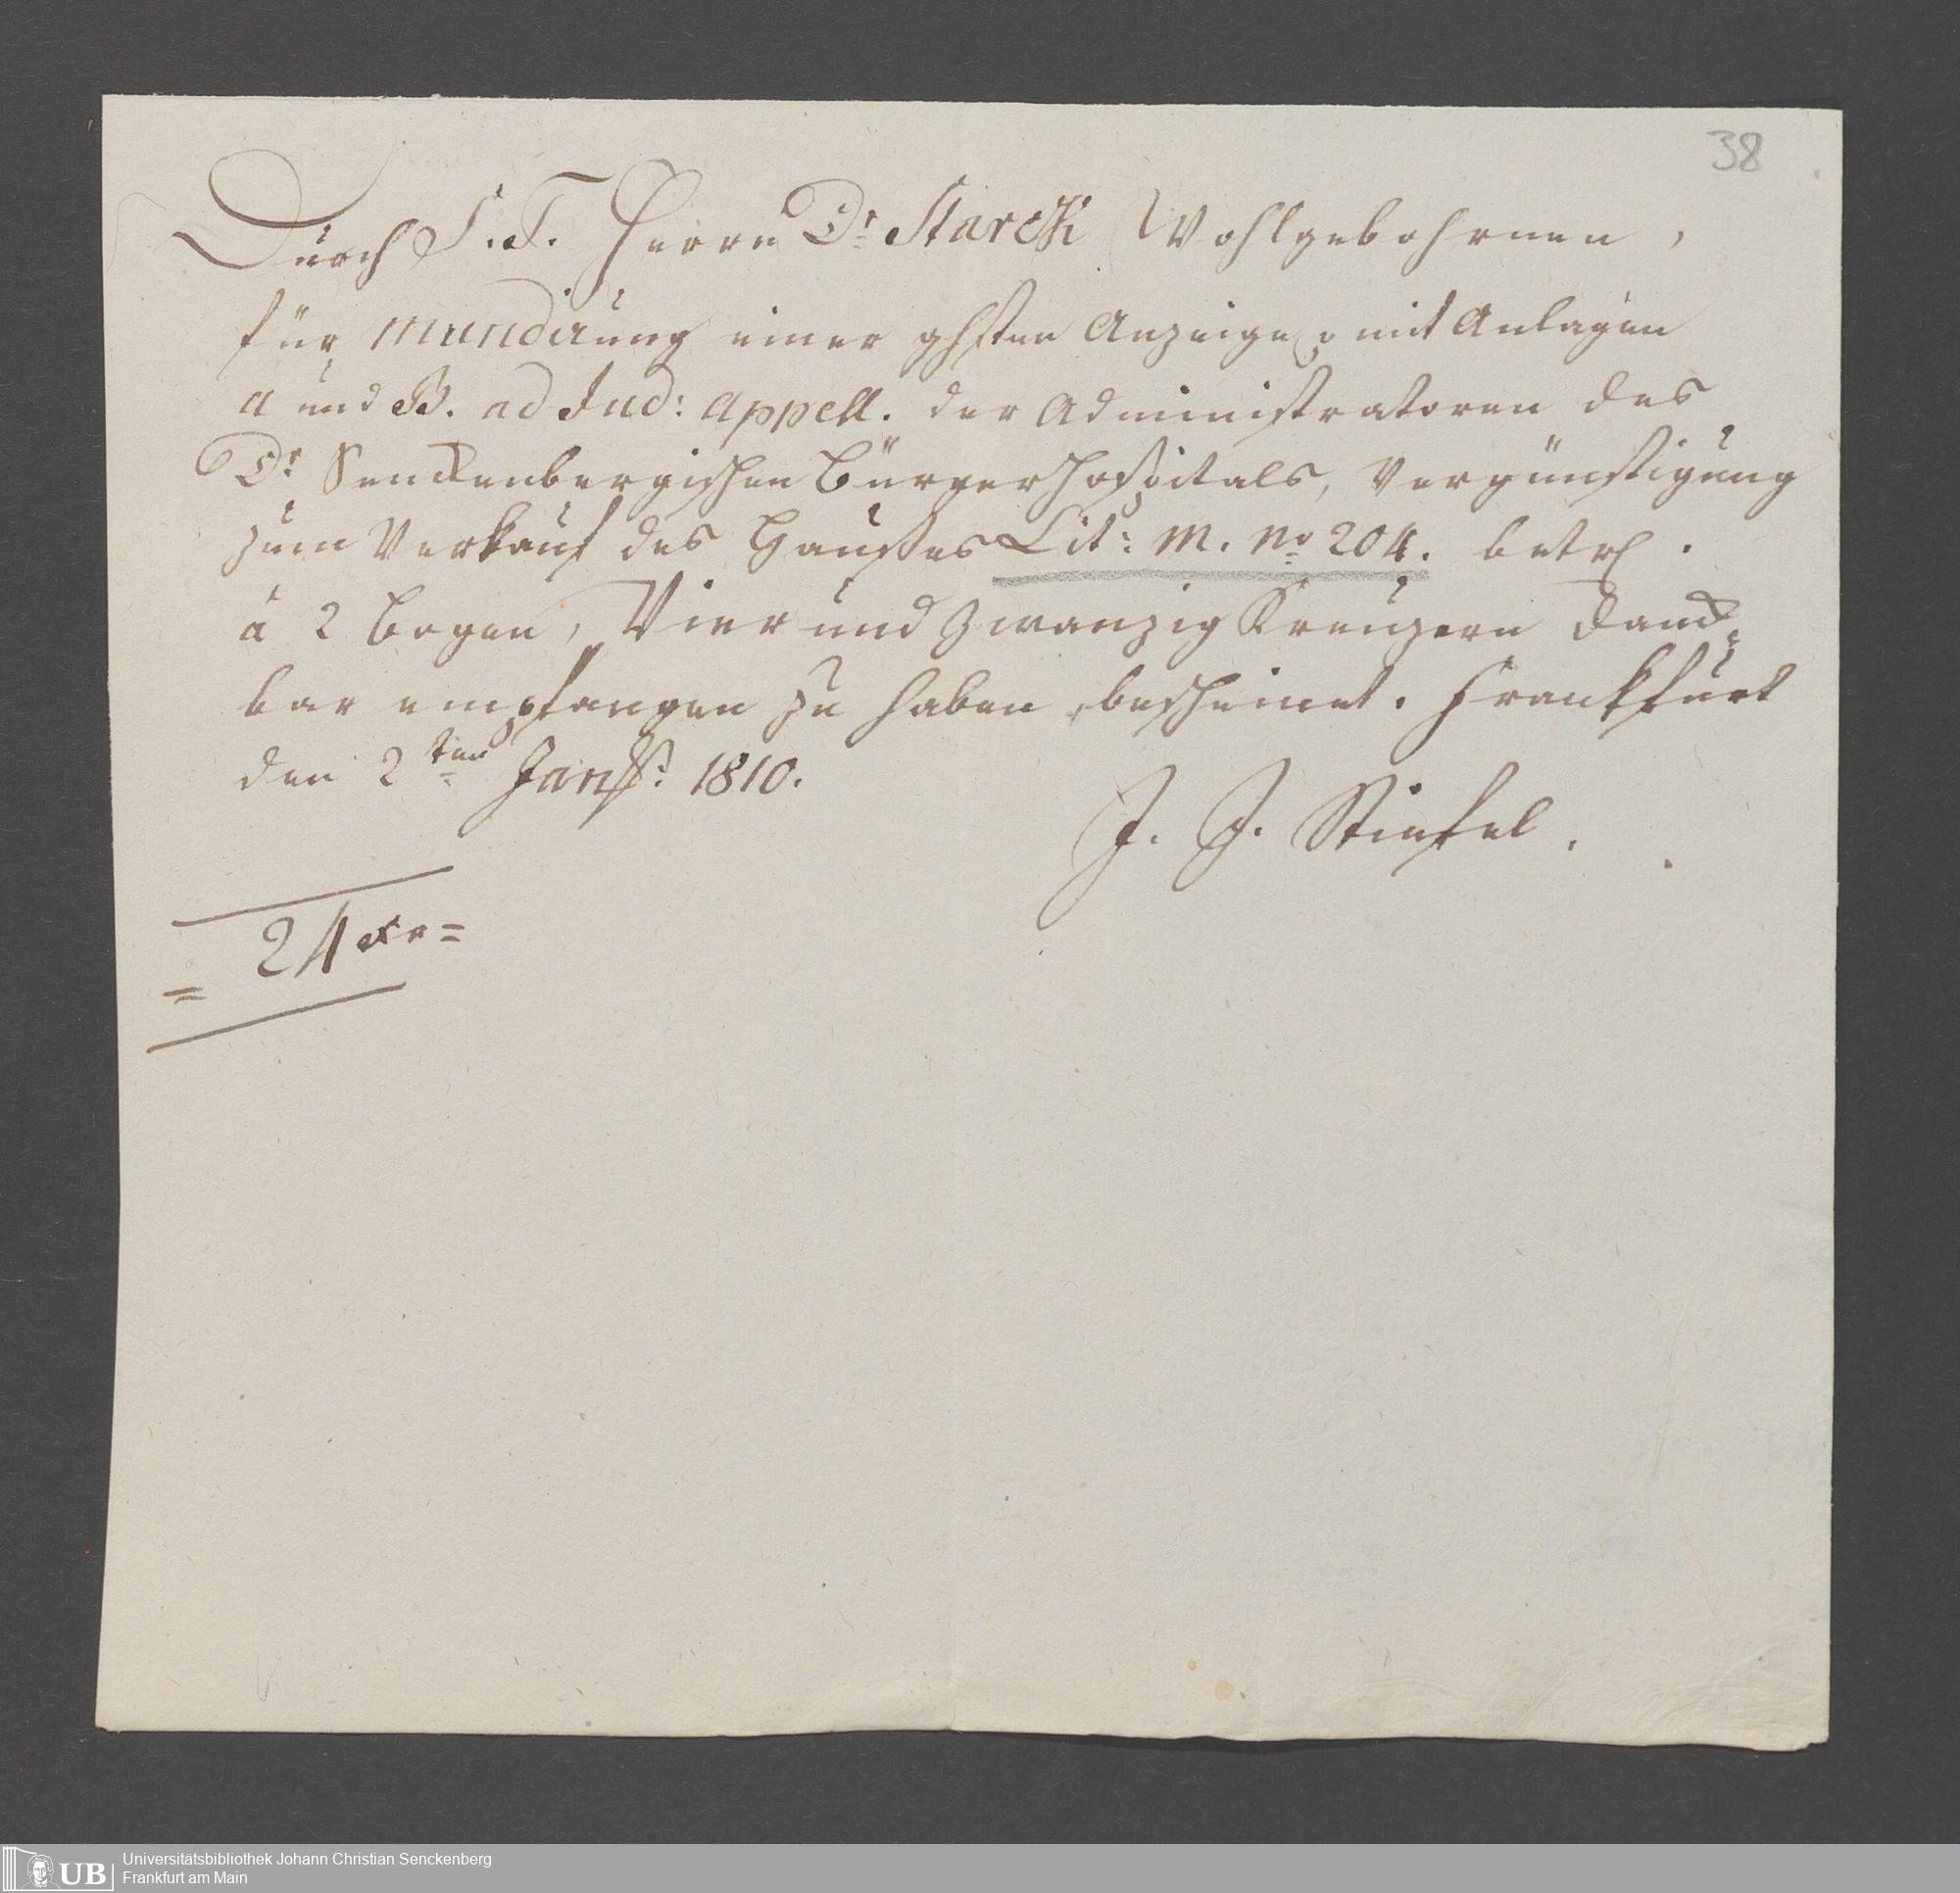 38
Durch S. T. Herrn Dr Starck Wohlgebohrnen,
für Mundirung einer ghsten Anzeige mit Anlagen
A und B. ad Jud: Appell. der Administratoren des
Dr Senckenbergischen Bürgerhospitals, Vergünstigung
zum Verkauf des Haußes Lit: M. No 204. betr.
à 2 Bogen, Vier und Zwanzig Kreuzern danck-
bar empfangen zu haben, bescheinet. Frankfurt
den 2ten Jan: 1810.
J. J. Stiefel.
24 xr =
Universitätsbibliothek Johann Christian Senckenberg
UB
Frankfurt am Main